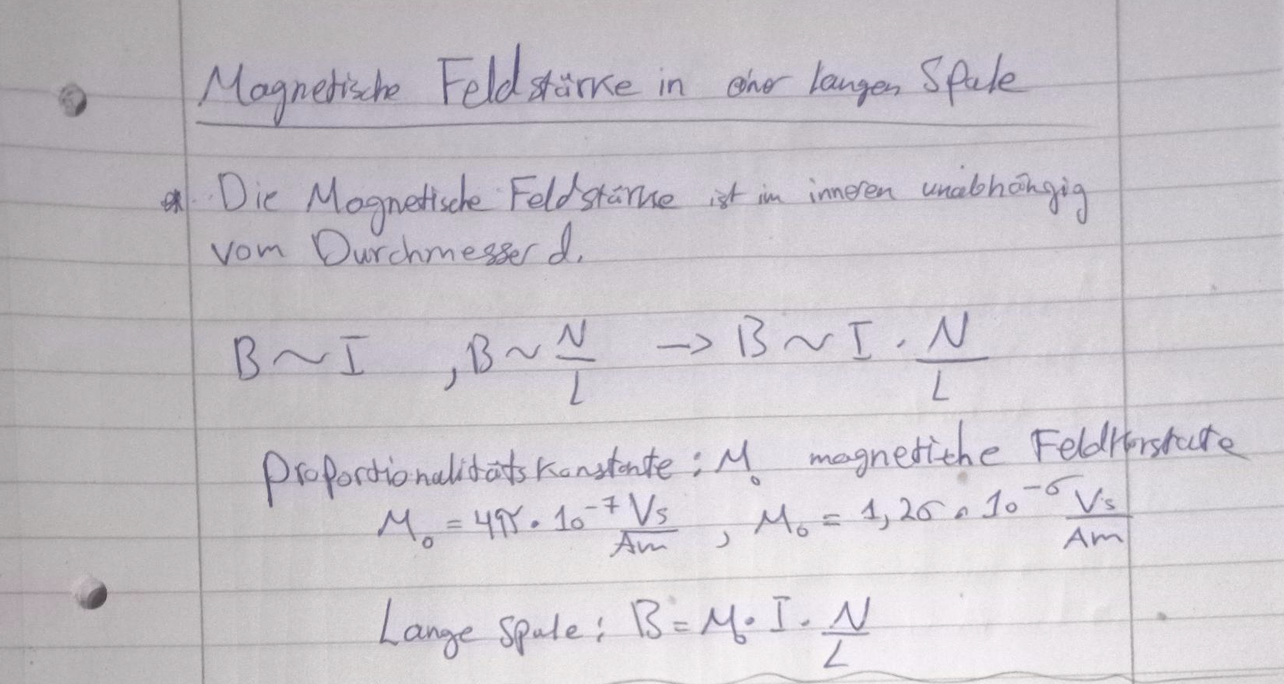 Magnetische Feldstärke in einer langen Spule
Die Magnetische Feldstärke ist im inneren unabhängig
vom Durchmesser d.
B ~ I , B ~ N/L → B ~ I · N/L
Proportionalitätskonstante : M₀ magnetiche Feldkonstante
M₀ = 4π · 10⁻⁷ Vs/Am , M₀ = 1,26 · 10⁻⁶ Vs/Am
Lange Spule : B = M₀ · I · N/L